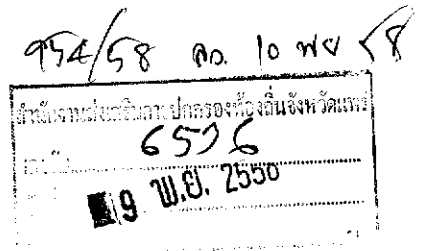 954/58 ลว. 10 พย 58
สำนักงานส่งเสริมการปกครองท้องถิ่นจังหวัดแพร่
6506
9 พ.ย. 2558